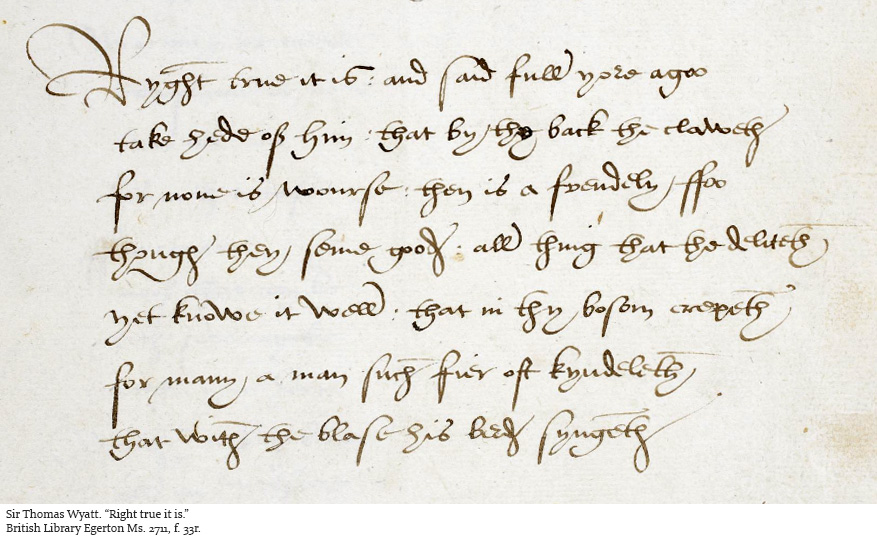 Ryght true it is : and said full yore agoo
take hede off him that by thy back the claweth
for none is wourse then is a frendely ffoo
though they seme good : all thing that the deliteth
yet knowe it well that in thy bosom crepeth
for many a man such fier oft kyndeleth
that with the blase his berd syngeth
Sir Thomas Wyatt. “Right true it is.”
British Library Egerton Ms. 2711, f. 33r.